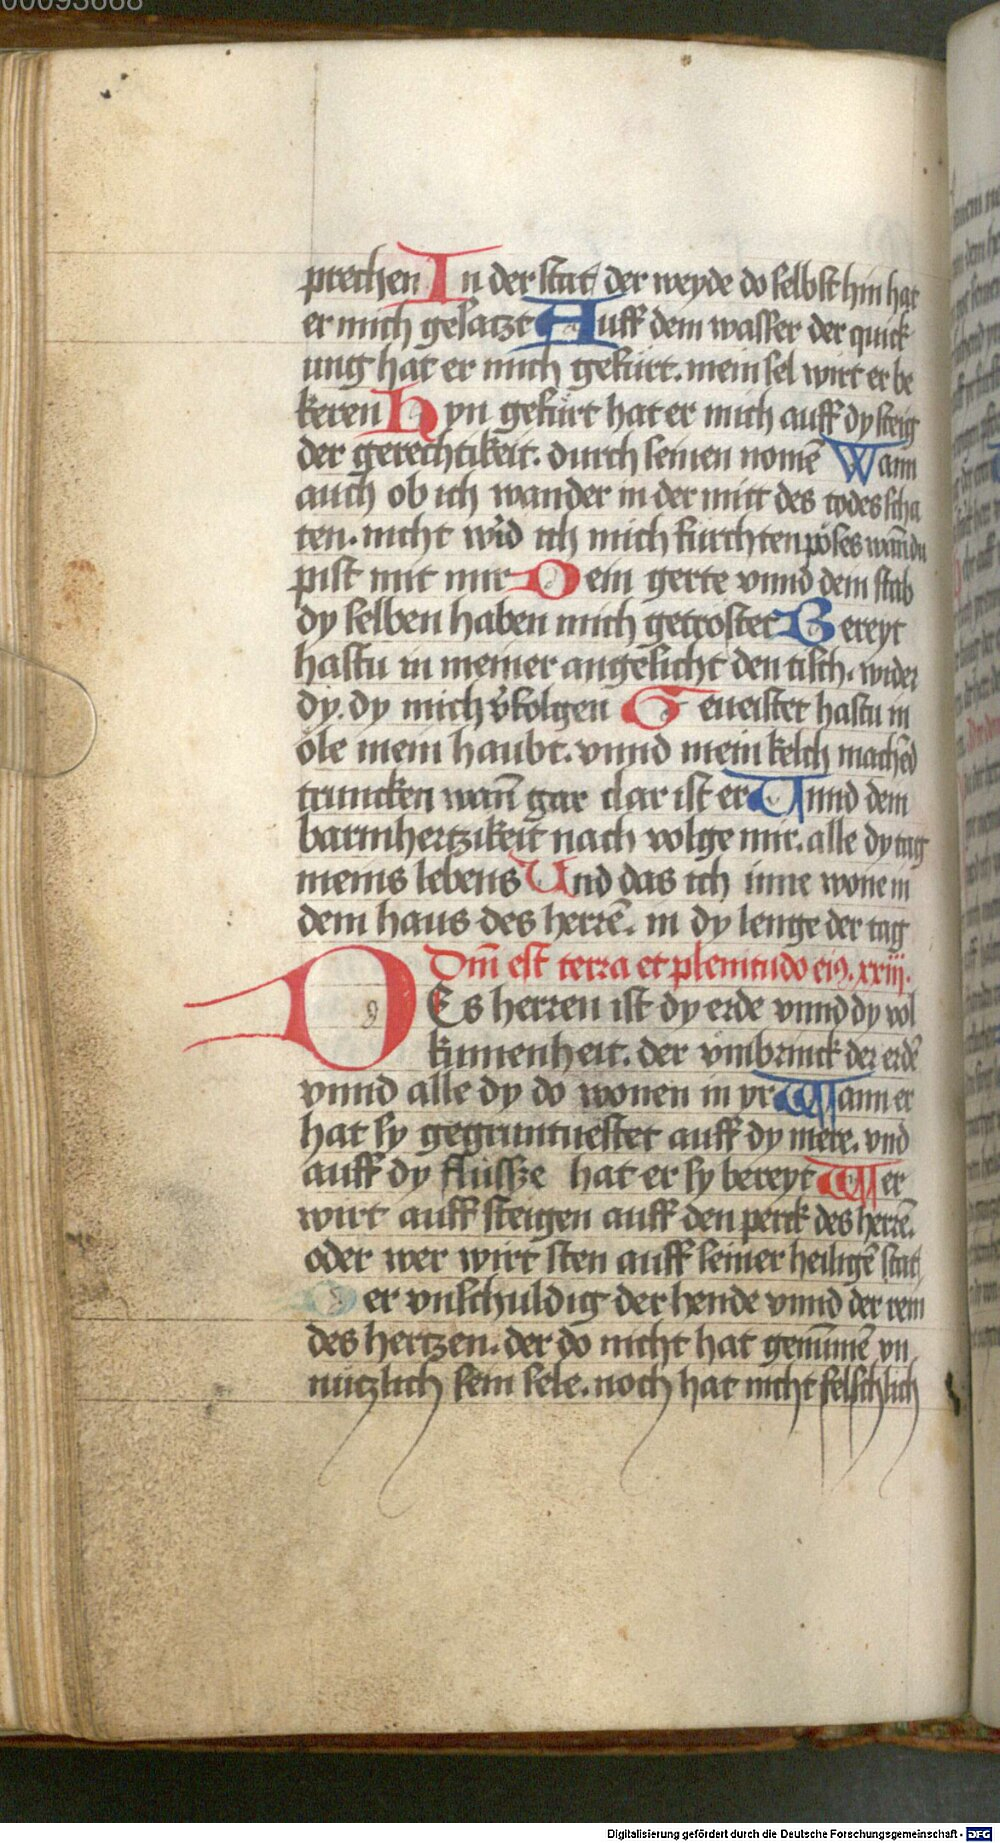 00093668
prechen In der stat der weyde do selbst hin hat
er mich gesatzt Auff dem wasser der quick
ung hat er mich gefürt. mein sel wirt er be
keren Hyn gefürt hat er mich auff dy steig
der gerechtikeit. durch seinen nomē Wann
auch ob ich wander in der mitt des todes scha
ten. nicht wird ich mich furchten pöses wañ du
pist mit mir Dein gerte vnnd dein stab
dy selben haben mich getrostet Bereyt
hastu in meiner angesicht den tisch. wider
dy. dy mich v̄folgen Geueistet hastu in
öle mein haubt. vnnd mein kelch machēd
truncken wañ gar clar ist er Vnnd dein
barmhertzikeit nach volge mir. alle dy tag
meins lebens Und das ich inne wone in
dem haus des herrē. in dy lenge der tag
Dn̄i est terra et plenitudo eiꝰ. xxiij.
DEs herren ist dy erde vnnd dy vol
kumenheit. der vmbrinck der erdē
vnnd alle dy do wonen in yr Wann er
hat sy gegruntuestet auff dy mere. vnd
auff dy flüsse hat er sy bereyt Wer
wirt auff steigen auff den perck des herrē.
oder wer wirt sten auff seiner heiligē stat
Der vnschuldig der hende vnnd der rein
des hertzen. der do nicht hat genūmē vn
nützlich sein sele. noch hat nicht felschlich
Digitalisierung gefördert durch die Deutsche Forschungsgemeinschaft - DFG